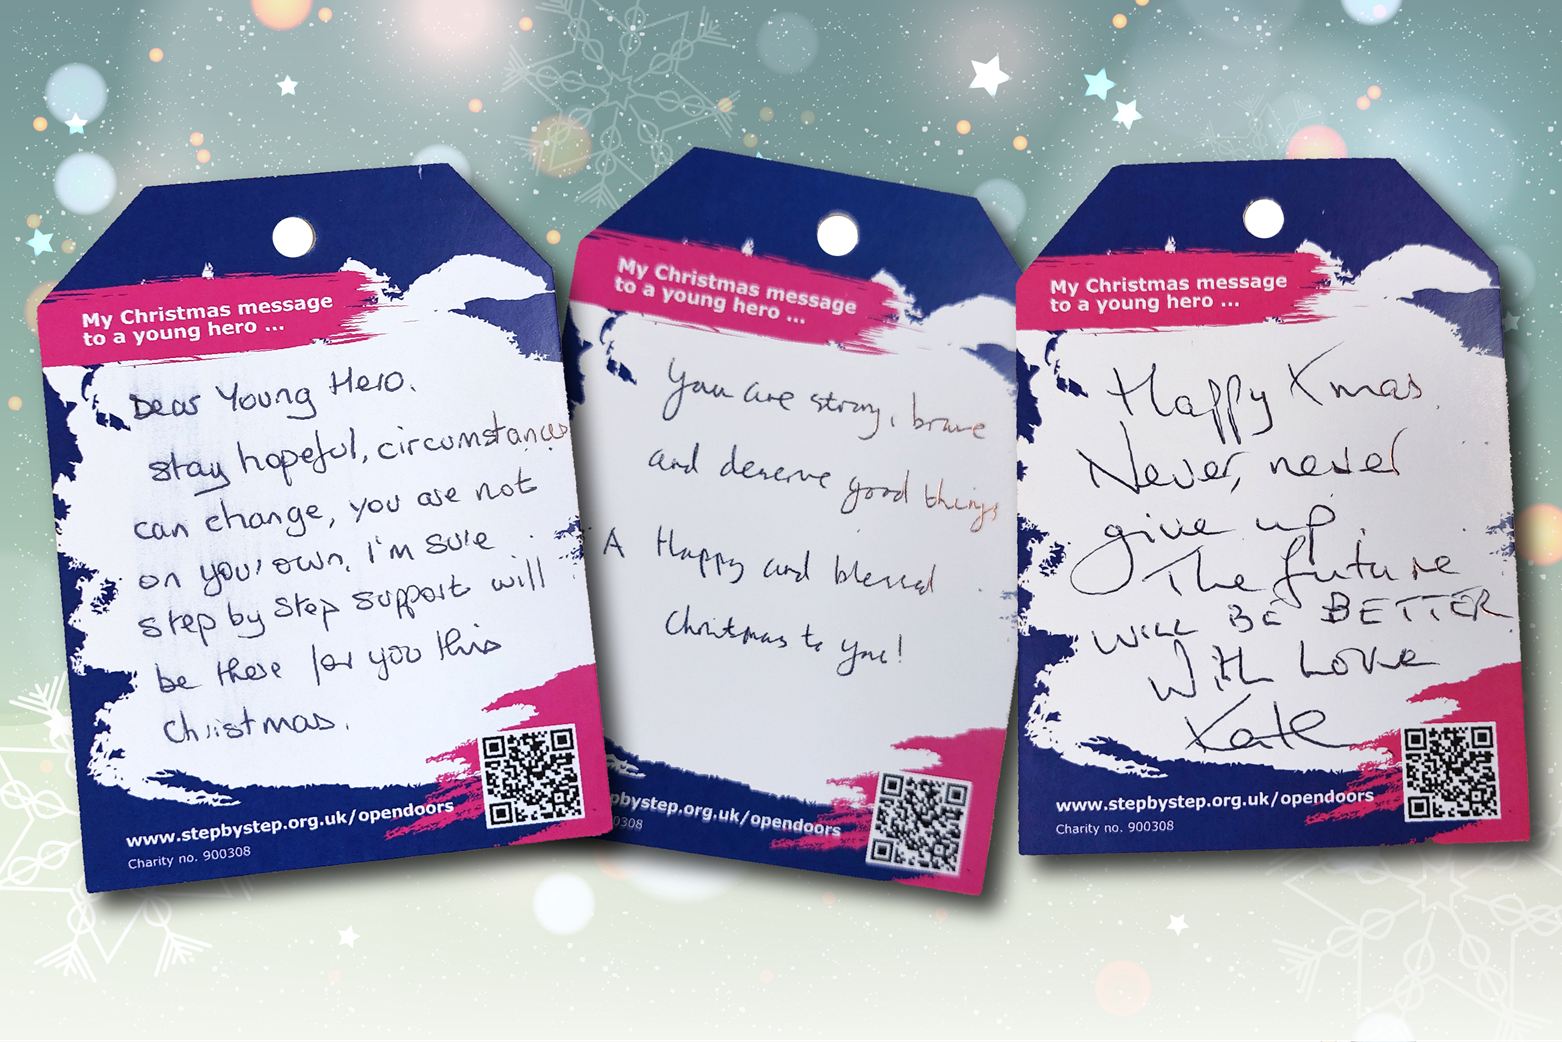 My Christmas message
to a young hero ...
Dear Young Hero.
stay hopeful, circumstances
can change, you are not
on your own, I'm sure
step by step support will
be there for you this
christmas.
www.stepbystep.org.uk/opendoors
Charity no. 900308
My Christmas message
to a young hero ...
You are strong, brave
and deserve good things
A Happy and blessed
Christmas to you!
pbystep.org.uk/opendoors
0308
My Christmas message
to a young hero ...
Happy Xmas.
Never, never
give up.
The future
WILL BE BETTER
With Love
Kate
www.stepbystep.org.uk/opendoors
Charity no. 900308